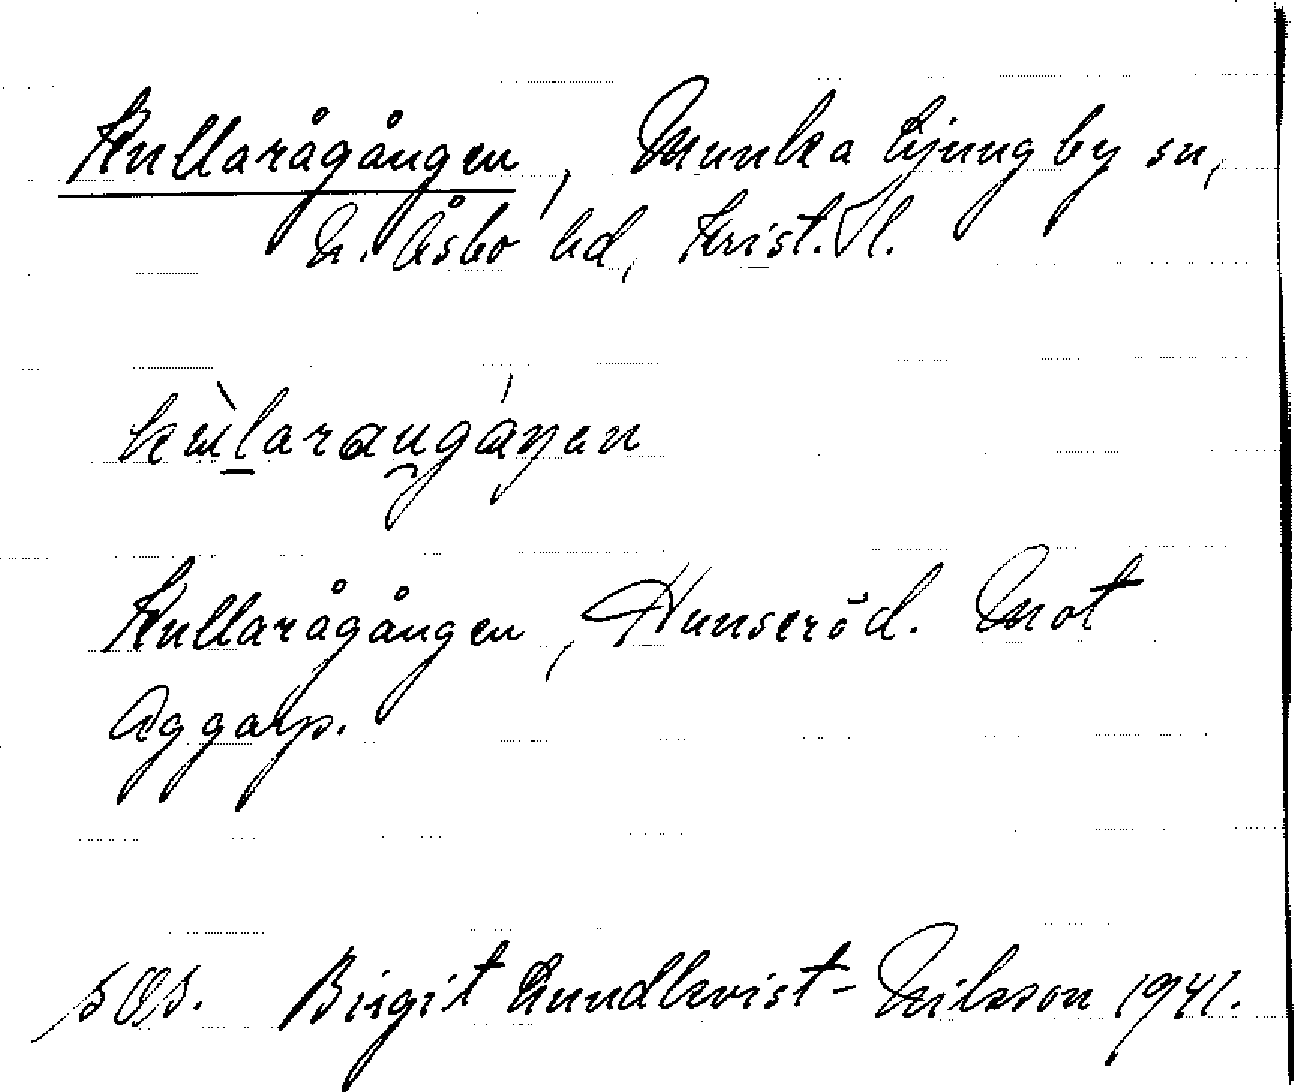 Kullarågången, Munka Ljungby sn,
N. Åsbo hd, Krist. l.
kùlaraugáŋen
Kullarågången, Hunseröd. Mot
Aggarp.
Birgit Lundkvist-Nilsson 1941.